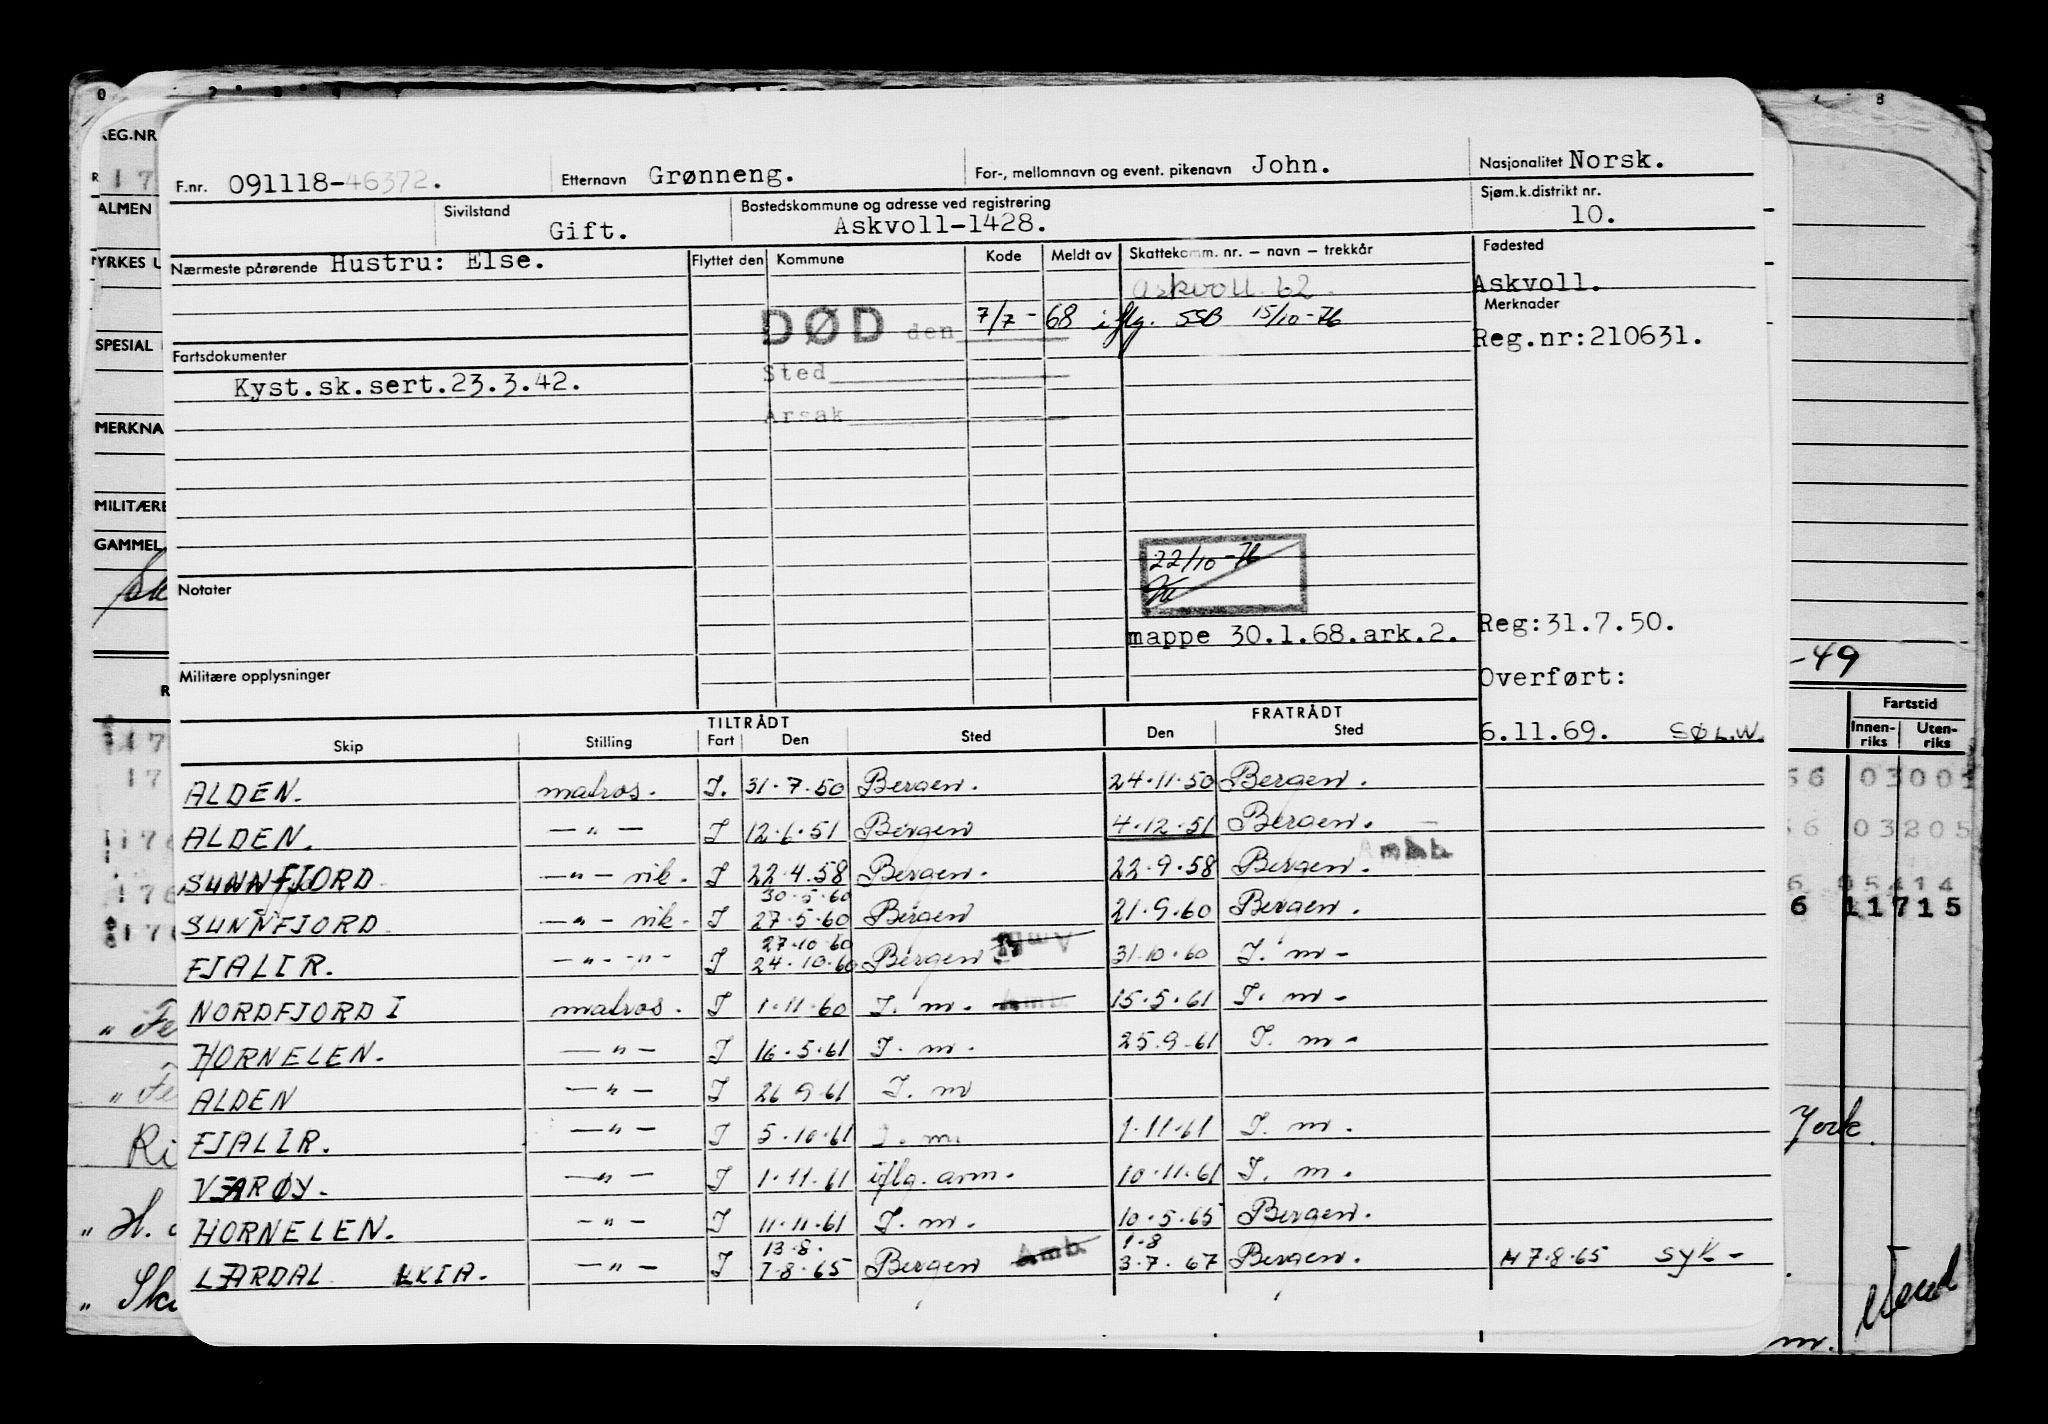 F.nr. 091118-46372. Etternavn Grønneng. For-, mellomnavn og event. pikenavn John. Nasjonalitet Norsk.
Sivilstand Gift. Bostedskommune og adresse ved registrering Askvoll-1428. Sjøm.k.distrikt nr. 10.
Nærmeste pårørende Hustru: Else. Flyttet den Kommune Kode Meldt av Skattekomm. nr. – navn – trekkår Fødested
Askvoll 62. Askvoll.
Merknader
DØD den 7/7-68 iflg. SSB 15/10-76
Reg.nr:210631.
Fartsdokumenter
Sted
Kyst.sk.sert.23.3.42.
Årsak
22/10-76
Notater
mappe 30.1.68.ark.2. Reg:31.7.50.
Militære opplysninger
Overført:
TILTRÅDT FRATRÅDT
Skip Stilling Fart Den Sted Den Sted 6.11.69. SØ L.W.
ALDEN. matros. I. 31.7.50 Bergen. 24.11.50 Bergen.
ALDEN. —"— I 12.6.51 Bergen 4.12.51 Bergen.
Amb.
SUNNFJORD —"— vik. I 22.4.58 Bergen. 22.9.58 Bergen
30.5.60
SUNNFJORD —"— vik. I 27.5.60 Bergen 21.9.60 Bergen.
27.10.60
FJALIR. —"—"— I 24.10.60 Bergen Amb 31.10.60 I. m-
NORDFJORD I matros. I 1.11.60 I. m. Amb. 15.5.61 I. m-
HORNELEN. —"— I 16.5.61 I. m. 25.9.61 I. m-
ALDEN —"— I 26 9.61 I. m
FJALIR. —"— I 5.10.61 I. m. 1.11.61 I. m.
VÆRØY. —"— I 1.11.61 iflg. avm. 10.11.61 I. m.
HORNELEN. —"— I 11.11.61 I. m. 10.5.65 Bergen.
13.8. 1.8
LÆRDAL LKIA. —"— I 7.8.65 Bergen Amb. 3.7.67 Bergen. 7.8.65 syk-
REG.NR
ALMEN
YRKES U
SPESIAL
MERKNA
MILITÆRE
GAMMEL
-49
Fartstid
Innen-
riks
Uten-
riks
03001
03205
05414
6 11715
York.